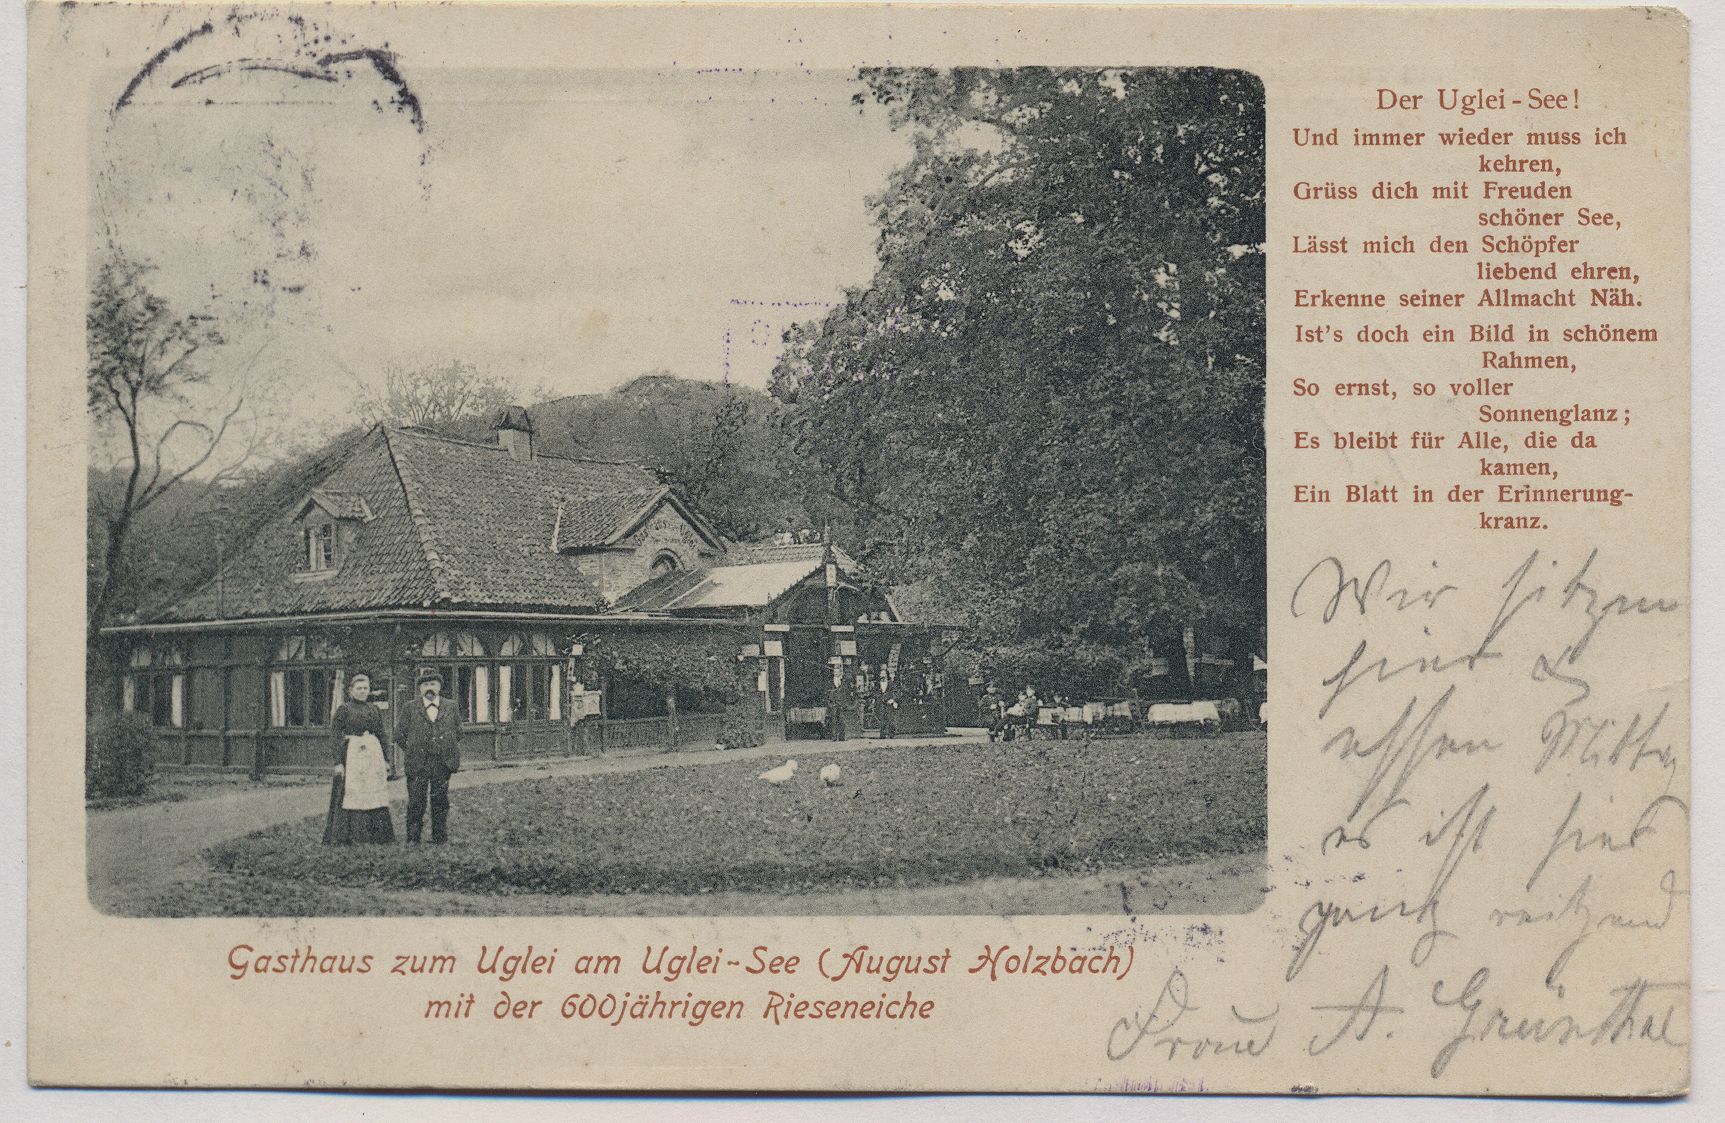 Der Uglei-See!
Und immer wieder muss ich
kehren,
Grüss dich mit Freuden
schöner See,
Lässt mich den Schöpfer
liebend ehren,
Erkenne seiner Allmacht Näh.
Ist's doch ein Bild in schönem
Rahmen,
So ernst, so voller
Sonnenglanz;
Es bleibt für Alle, die da
kamen,
Ein Blatt in der Erinnerung-
kranz.
Wir sitzen
hier &
essen Mittag
es ist hier
ganz reitzend
Frau A. Grünthal
Gasthaus zum Uglei am Uglei-See (August Holzbach)
mit der 600jährigen Rieseneiche